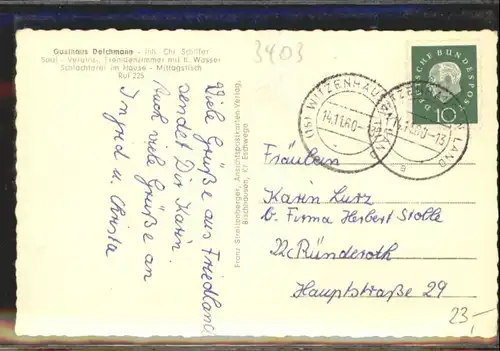 Gasthaus Deichmann - Inh. Chr. Schiffer
Saal - Vereins-, Fremdenzimmer mit fl. Wasser
Schlachterei im Hause - Mittagstisch
Ruf 225
3403
Viele Grüße aus Friedland
sendet Dir Karin.
Auch viele Grüße an
Ingrid u. Christa
Franz Streitenberger, Ansichtspostkarten-Verlag,
Bischhausen, Kr. Eschwege
DEUTSCHE BUNDESPOST
10
(16) WITZENHAUSEN LAND
14.11.60-
a
Fräulein
Karin Lurz
b. Firma Herbert Stolle
Ründeroth
Hauptstraße 29
23,-